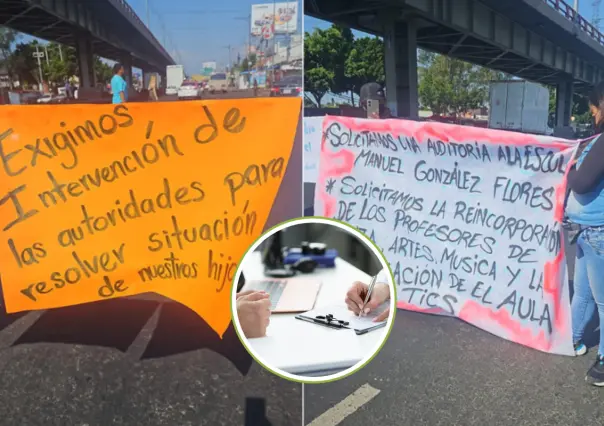 Exigimos
Intervención de
las autoridades para
resolver situación
de nuestros hijo
SOLICITAMOS UNA AUDITORIA A LA ESCUE
MANUEL GONZÁLEZ FLORES
* SOLICITAMOS LA REINCORPORACIÓN
DE LOS PROFESORES DE
ARTES, MUSICA Y LA
ACIÓN DE EL AULA
TICS